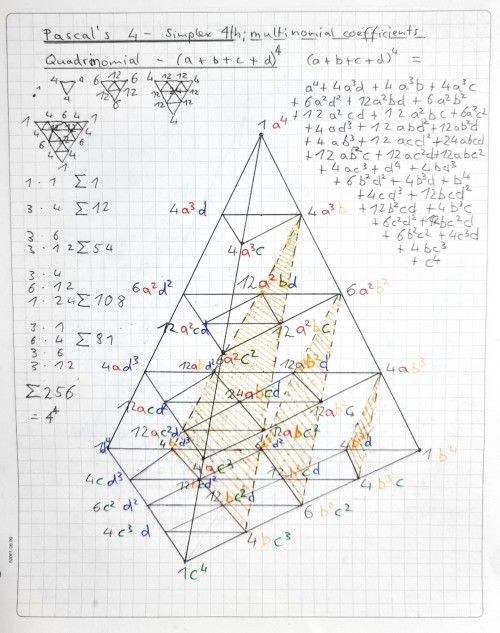 Pascal's 4 - Simplex 4th; multinomial coefficients
Quadrinomial - (a+b+c+d)⁴ (a+b+c+d)⁴ =
a⁴+4a³d+4a³b+4a³c
+6a²d²+12a²bd+6a²b²
+12a²cd+12a²bc+6a²c²
+4ad³+12abd²+12ab²d
+4ab³+12acd²+24abcd
+12ab²c+12ac²d+12abc²
+4ac³+d⁴+4bd³
+6b²d²+4b³d+b⁴
+4cd³+12bcd²
+12b²cd+4b³c
+6c²d²+12bc²d
+6b²c²+4c³d
+4bc³
+c⁴
1 · 1 Σ1
3 · 4 Σ12
3 · 6
3 · 12 Σ54
3 · 4
6 · 12
1 · 24 Σ108
3 · 1
6 · 4 Σ81
3 · 6
3 · 12
Σ256
= 4⁴
1a⁴
4a³d 4a³b
4a³c
6a²d² 12a²bd 6a²b²
12a²cd 12a²bc
6a²c²
4ad³ 12abd² 12ab²d 4ab³
12acd² 24abcd 12ab²c
12ac²d 12abc²
d⁴ 4bd³ 4ac³ 1b⁴
4cd³ 12bcd² 12b²cd 4b³c
6c²d² 12bc²d 6b²c²
4c³d 4bc³
1c⁴